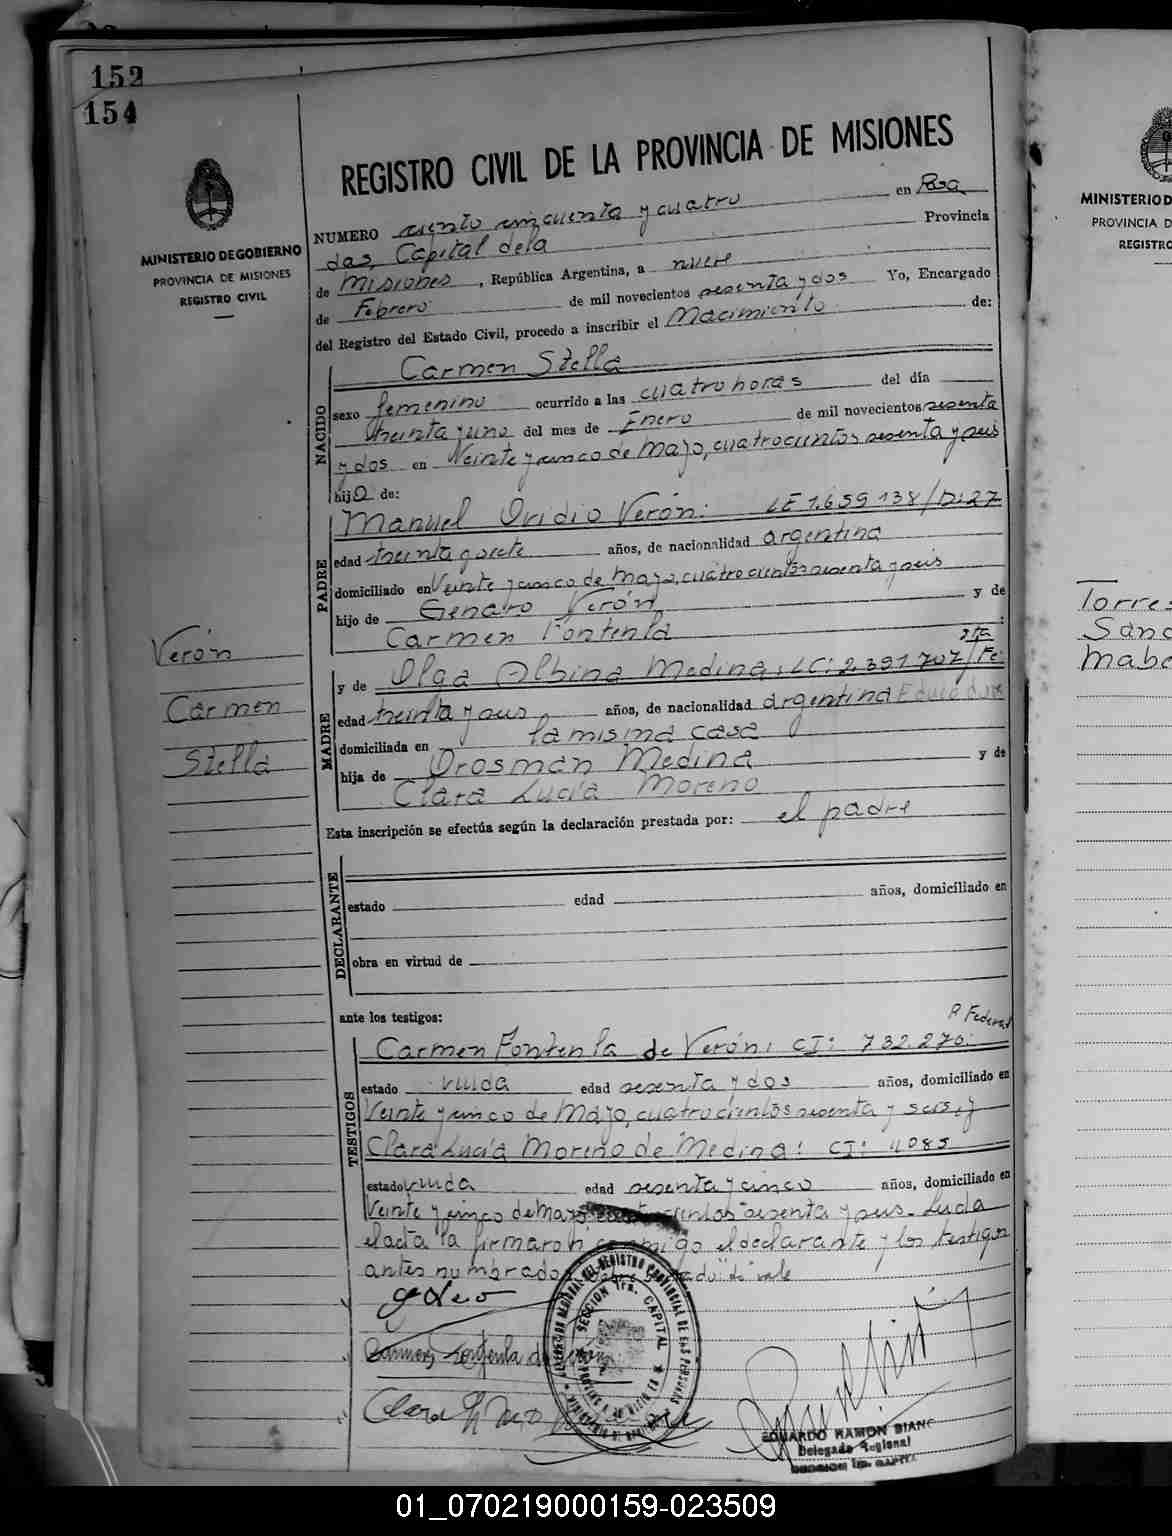 152
154
MINISTERIO DE GOBIERNO
PROVINCIA DE MISIONES
REGISTRO CIVIL
REGISTRO CIVIL DE LA PROVINCIA DE MISIONES
NUMERO ciento cincuenta y cuatro en Posa
das, Capital de la Provincia
de Misiones, República Argentina, a nueve
de Febrero de mil novecientos sesenta y dos Yo, Encargado
del Registro del Estado Civil, procedo a inscribir el Nacimiento de:
NACIDO
Carmen Stella
sexo femenino ocurrido a las cuatro horas del día
treinta y uno del mes de Enero de mil novecientos sesenta
y dos en Veinte y cinco de Mayo, cuatrocientos sesenta y seis
hija de:
PADRE
Manuel Ovidio Verón: LE 1.659.138/D:27
edad treinta y siete años, de nacionalidad argentina
domiciliado en Veinte y cinco de Mayo, cuatrocientos sesenta y seis
hijo de Genaro Verón y de
Carmen Fontenla
MADRE
y de Olga Albina Medina: LC: 2.391.707/Sta Fe:
edad treinta y seis años, de nacionalidad argentina
domiciliada en la misma casa
hija de Orosman Medina y de
Clara Lucía Moreno
Esta inscripción se efectúa según la declaración prestada por: el padre
DECLARANTE
estado edad años, domiciliado en
obra en virtud de
ante los testigos: P. Federal
TESTIGOS
Carmen Fontenla de Verón: CI: 732.270:
estado viuda edad sesenta y dos años, domiciliado en
Veinte y cinco de Mayo, cuatrocientos sesenta y seis, y
Clara Lucía Moreno de Medina: CI: 4085
estado viuda edad sesenta y cinco años, domiciliado en
Veinte y cinco de Mayo cuatrocientos sesenta y seis. Leída
el acta la firmaron conmigo el declarante y los testigos
antes nombrados vale
Verón
Carmen
Stella
Carmen Fontenla de
Clara
SECCION 1ra. CAPITAL
EDUARDO RAMON BIANC
Delegado Regional
MINISTERIO D
PROVINCIA D
REGISTRO
Torres
Sand
Mabe
01_070219000159-023509